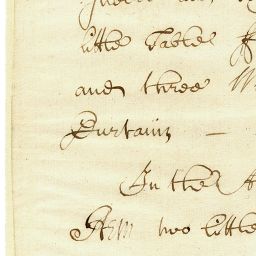 little Table
and three W
Curtains —
In the
Item two little